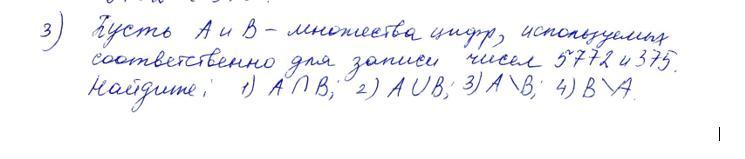 3) Пусть A и B – множества цифр, используемых
соответственно для записи чисел 5772 и 375.
Найдите: 1) A∩B; 2) A∪B; 3) A\B; 4) B\A.